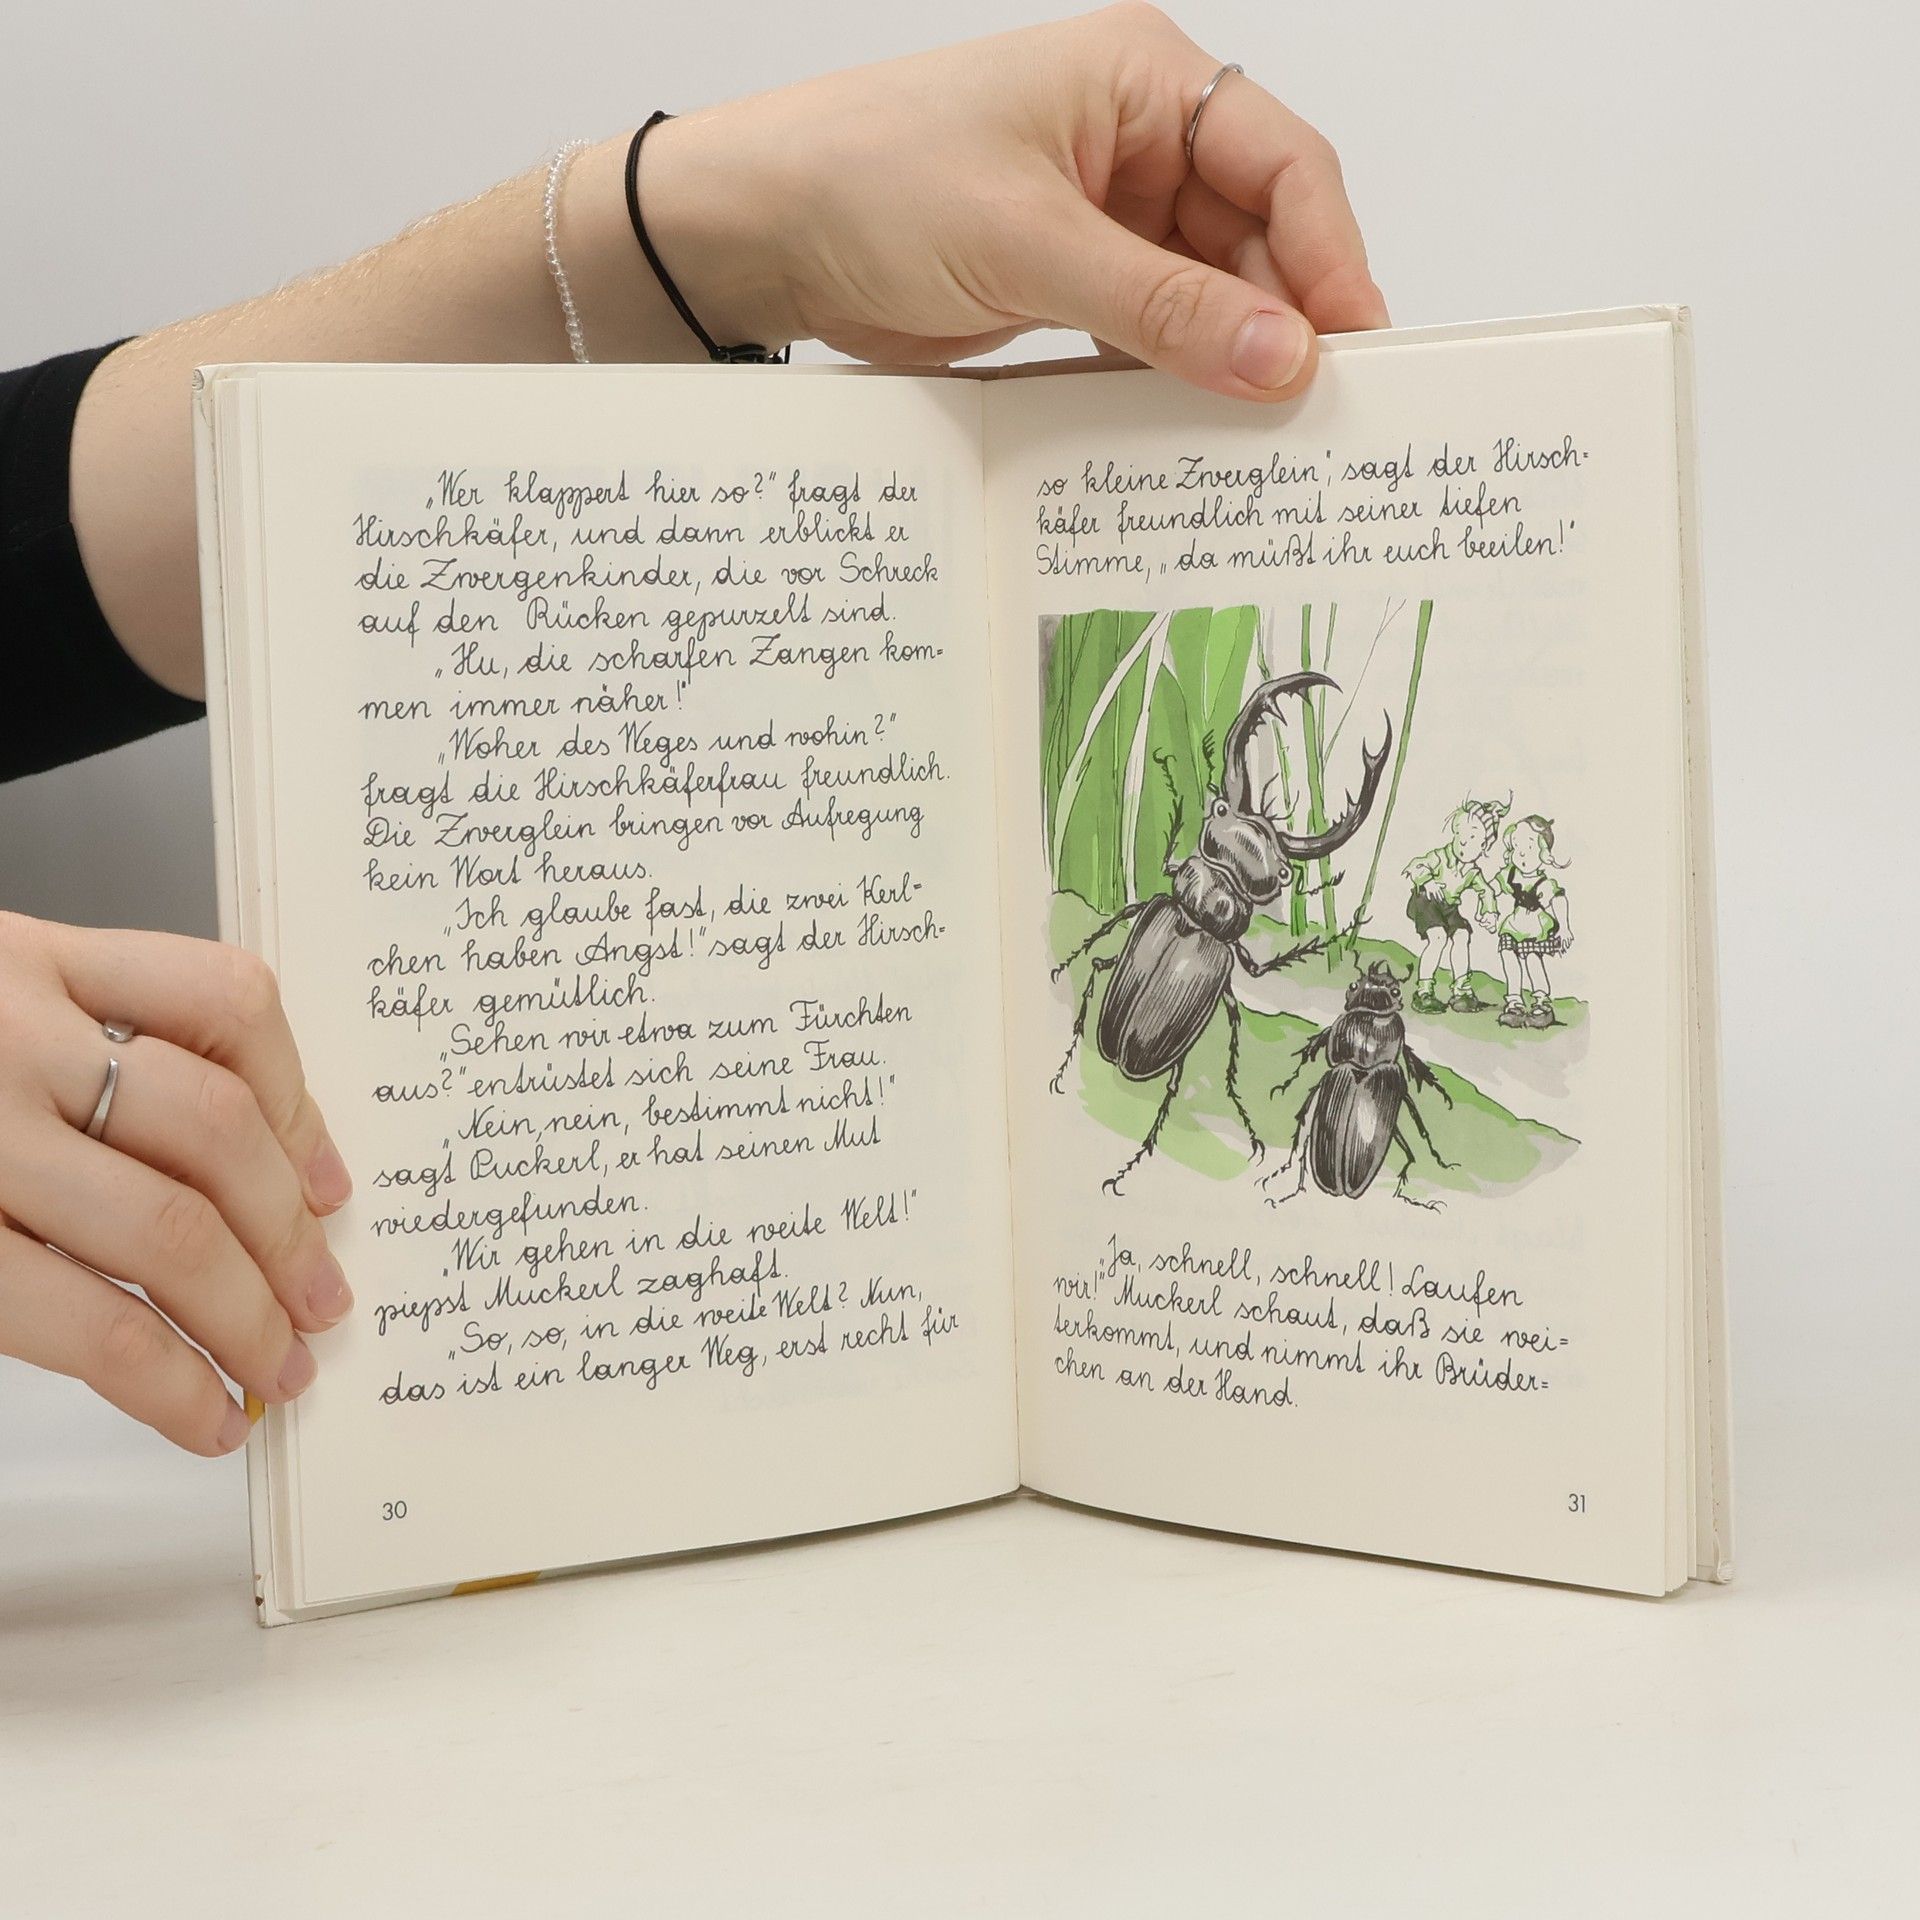 „Wer klappert hier so?“ fragt der
Hirschkäfer, und dann erblickt er
die Zwergenkinder, die vor Schreck
auf den Rücken gepurzelt sind.
„Hu, die scharfen Zangen kom=
men immer näher!“
„Woher des Weges und wohin?“
fragt die Hirschkäferfrau freundlich.
Die Zwerglein bringen vor Aufregung
kein Wort heraus.
„Ich glaube fast, die zwei Kerl=
chen haben Angst!“ sagt der Hirsch=
käfer gemütlich.
„Sehen wir etwa zum Fürchten
aus?“ entrüstet sich seine Frau.
„Nein, nein, bestimmt nicht!“
sagt Puckerl, er hat seinen Mut
wiedergefunden.
„Wir gehen in die weite Welt!“
piepst Muckerl zaghaft.
„So, so, in die weite Welt? Nun,
das ist ein langer Weg, erst recht für
30
so kleine Zwerglein“, sagt der Hirsch=
käfer freundlich mit seiner tiefen
Stimme, „da müßt ihr euch beeilen!“
„Ja, schnell, schnell! Laufen
wir!“ Muckerl schaut, daß sie wei=
terkommt, und nimmt ihr Brüder=
chen an der Hand.
31